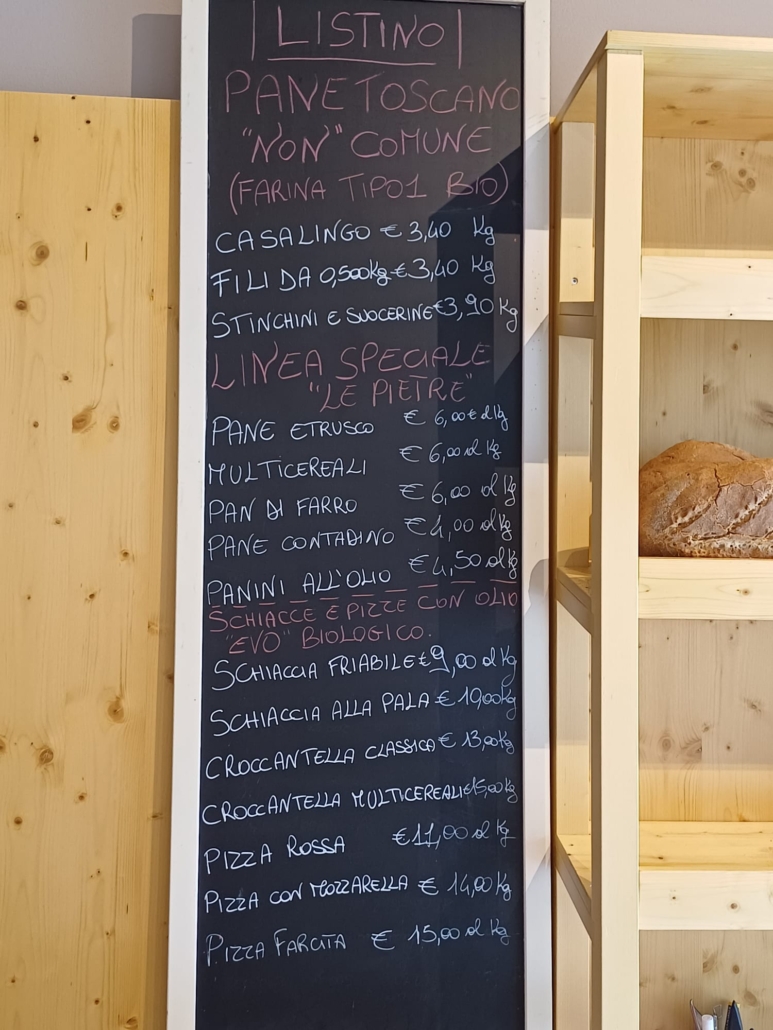 LISTINO
PANE TOSCANO
"NON" COMUNE
(FARINA TIPO1 BIO)
CASALINGO € 3,40 Kg
FILI DA 0,500kg € 3,40 Kg
STINCHINI E SUOCERINE €3,90 Kg
LINEA SPECIALE
"LE PIETRE"
PANE ETRUSCO € 6,00€ al Kg
MULTICEREALI € 6,00 al Kg
PAN DI FARRO € 6,00 al Kg
PANE CONTADINO € 4,00 al Kg
PANINI ALL'OLIO € 4,50 al Kg
SCHIACCE E PIZZE CON OLIO
"EVO" BIOLOGICO.
SCHIACCIA FRIABILE € 9,00 al Kg
SCHIACCIA ALLA PALA € Kg
CROCCANTELLA CLASSICA € 13,00 Kg
CROCCANTELLA MULTICEREALI €15,00 Kg
PIZZA ROSSA € 11,00 al Kg
PIZZA CON MOZZARELLA € 14,00 Kg
PIZZA FARCITA € 15,00 al Kg